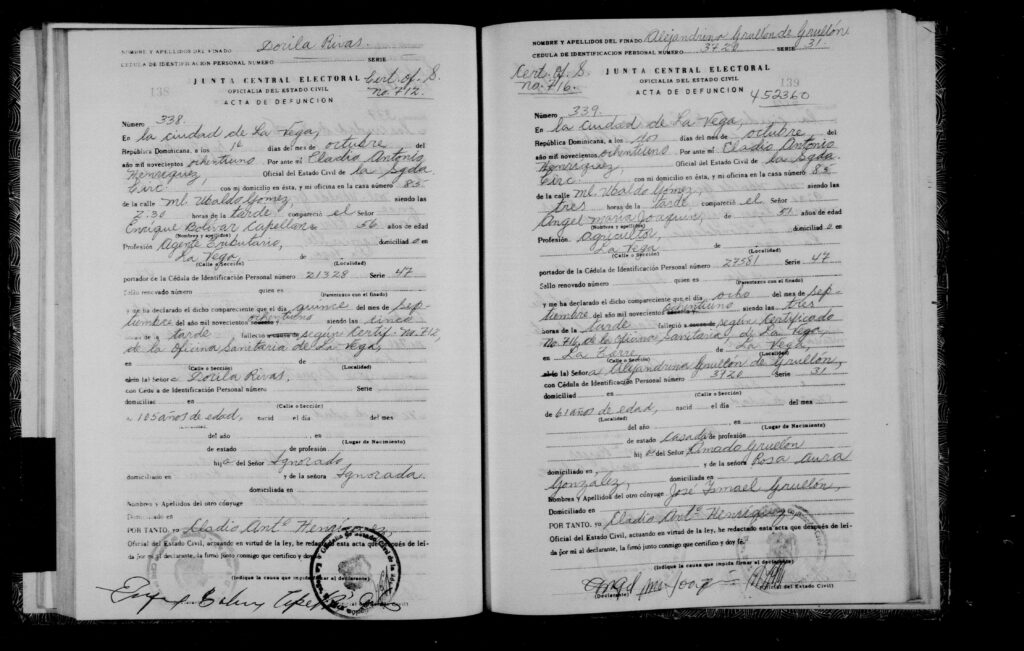 NOMBRE Y APELLIDOS DEL FINADO Dorila Rivas.
CEDULA DE IDENTIFICACION PERSONAL NUMERO SERIE
JUNTA CENTRAL ELECTORAL
OFICIALIA DEL ESTADO CIVIL
ACTA DE DEFUNCION
138
Cert. of. S.
No. 712.
Número 338.
En la ciudad de La Vega,
República Dominicana, a los 1º días del mes de octubre del
año mil novecientos ochentiuno Por ante mí Cladio Antonio
Henriquez, Oficial del Estado Civil de la Sgda
Circ. con mi domicilio en ésta, y mi oficina en la casa número 85
de la calle Ml. Ubaldo Gomez, siendo las
2.30 horas de la tarde compareció el Señor
Enrique Bolivar Capellan 56 años de edad
(Nombre y apellidos)
Profesión Agente Tributario, domiciliado en
La Vega, de
(Calle o Sección) (Localidad)
portador de la Cédula de Identificación Personal número 21328 Serie 47
Sello renovado número quien es
(Parentesco con el finado)
y me ha declarado el dicho compareciente que el día quince del mes de Sep-
tiembre del año mil novecientos ochentiuno siendo las cinco
horas de la tarde falleció a causa de según Certif. No. 712,
de la Oficina Sanitaria de La Vega,
en de
(Calle o Sección) (Localidad)
el (o la) Señora Dorila Rivas.
con Cédula de Identificación Personal número Serie
domiciliad en
(Calle o Sección)
a 105 años de edad, nacid el día del mes
(Localidad)
del año , en
(Lugar de Nacimiento)
de estado de profesión
hija del Señor Ignorado
domiciliado en y de la señora Ignorada.
domiciliada en
Nombres y Apellidos del otro cónyuge
Domiciliado en
POR TANTO, yo Cladio Antº Henriquez
Oficial del Estado Civil, actuando en virtud de la ley, he redactado esta acta que después de leí-
da por mí al declarante, la firmó junto conmigo que certifico y doy
(Indique la causa que impida firmar el declarante)
NOMBRE Y APELLIDOS DEL FINADO Alejandrina Grullón de Grullón
CEDULA DE IDENTIFICACION PERSONAL NUMERO 3720 SERIE 31.
Cert. of. S.
No. 716.
JUNTA CENTRAL ELECTORAL
OFICIALIA DEL ESTADO CIVIL
ACTA DE DEFUNCION
139
452360
Número 339.
En la Ciudad de La Vega,
República Dominicana, a los dos días del mes de octubre, del
año mil novecientos ochentiuno Por ante mí Cladio Antonio
Henriquez, Oficial del Estado Civil de la Sgda.
Circ. con mi domicilio en ésta, y mi oficina en la casa número 85
de la calle Ml. Ubaldo Gomez, siendo las
tres horas de la tarde compareció el Señor
Angel Maria Joaquin, de 51 años de edad
(Nombre y apellidos)
Profesión Agricultor domiciliado en
La Vega de
(Calle o Sección) (Localidad)
portador de la Cédula de Identificación Personal número 27581 Serie 47
Sello renovado número quien es
(Parentesco con el finado)
y me ha declarado el dicho compareciente que el día ocho del mes de sep-
tiembre del año mil novecientos ochentiuno siendo las tres
horas de la tarde falleció a causa de según Certificado
No. 716, de la Oficina Sanitaria, de La Vega,
en La Torre de La Vega,
(Calle o Sección) (Localidad)
el (o la) Señora Alejandrina Grullón de Grullón,
con Cédula de Identificación Personal número 3720 Serie 31
domiciliad en
(Calle o Sección)
de 61 años de edad, nacid el día del mes
(Localidad)
del año , en
(Lugar de Nacimiento)
de estado casada de profesión
hija del Señor Amado Grullón
domiciliado en, y de la señora Rosa Aura
Gonzalez, domiciliada en
Nombres y Apellidos del otro cónyuge José Ismael Grullón,
Domiciliado en
POR TANTO, yo Cladio Antº Henriquez
Oficial del Estado Civil, actuando en virtud de la ley, he redactado esta acta que después de leí-
da por mí al declarante, la firmó junto conmigo que certifico y doy fé
(Indique la causa que impida firmar el declarante)
Angel Ma Joaq
(Declarante) Oficial del Estado Civil)